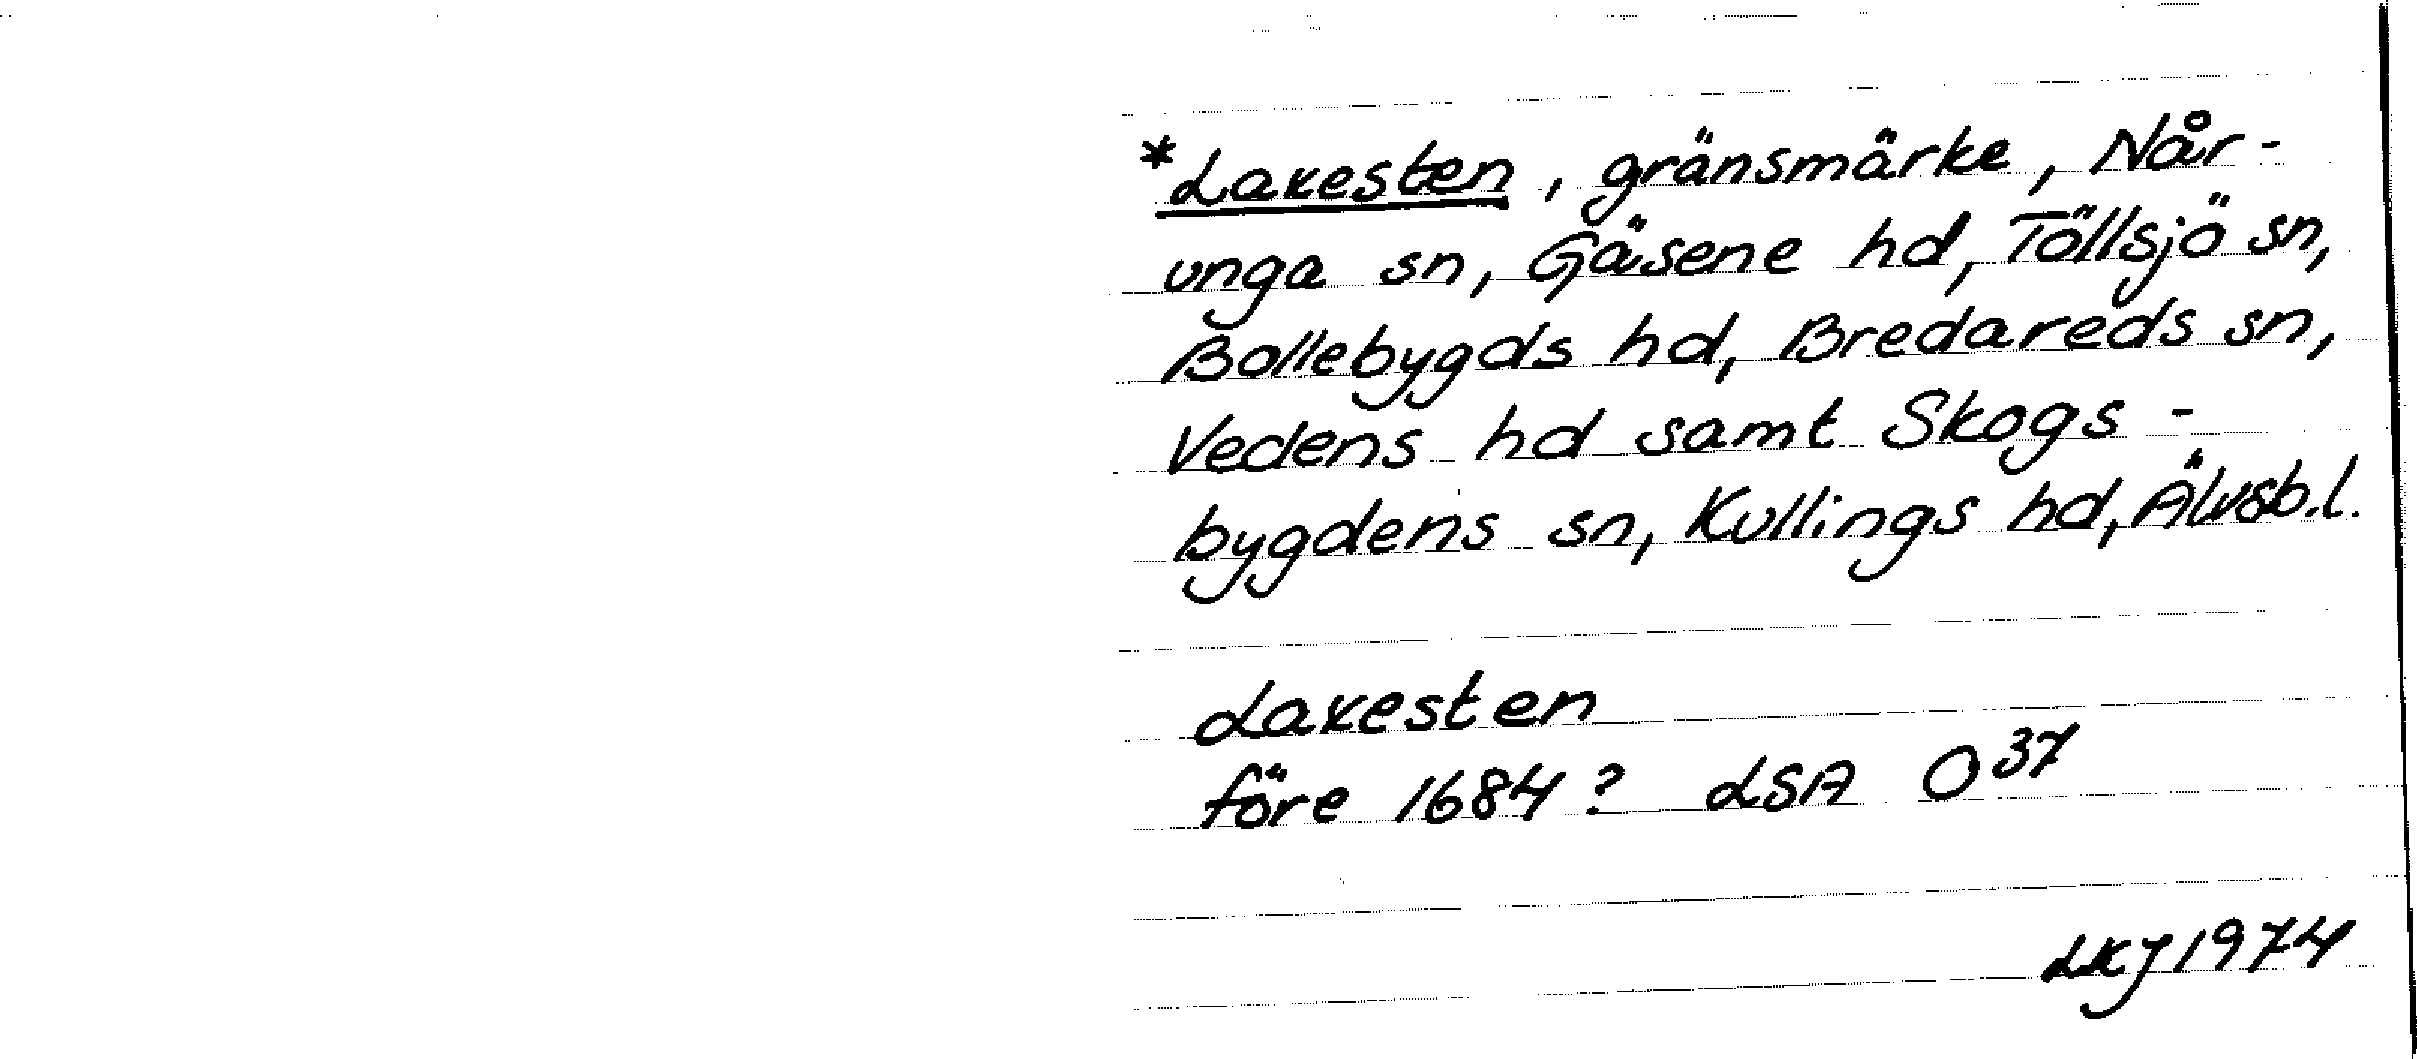 *Laxesten, gränsmärke, Når-
unga sn, Gäsene hd, Töllsjö sn,
Bollebygds hd, Bredareds sn,
Vedens hd samt Skogs-
bygdens sn, Kullings hd, Älvsb.l.
Laxesten
före 1684? LSA O³⁷
LKJ 1974